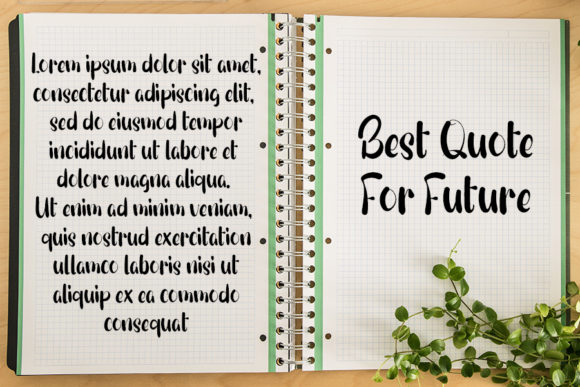 Lorem ipsum dolor sit amet,
consectetur adipiscing elit,
sed do eiusmod tempor
incididunt ut labore et
dolore magna aliqua.
Ut enim ad minim veniam,
quis nostrud exercitation
ullamco laboris nisi ut
aliquip ex ea commodo
consequat
Best Quote
For Future